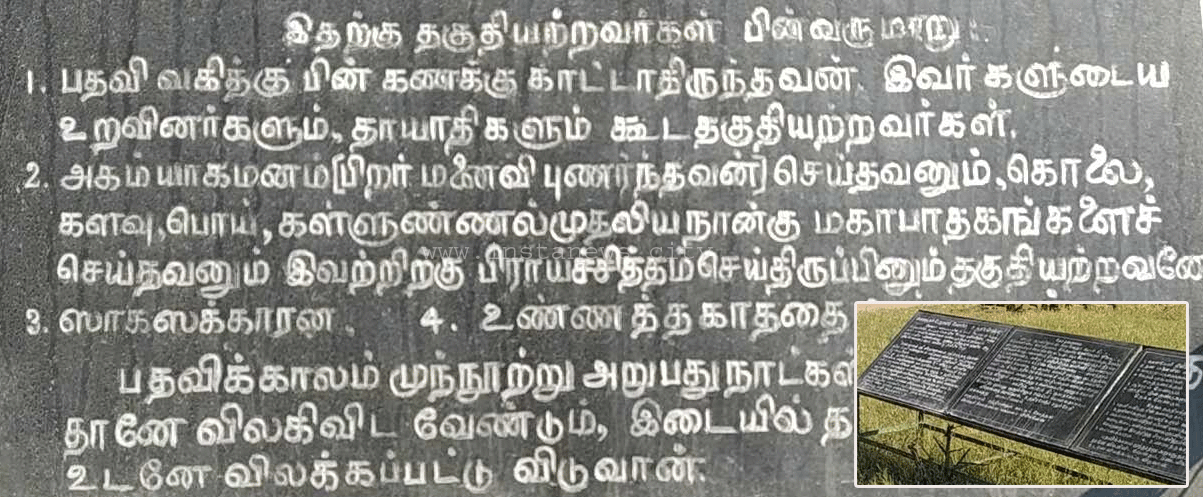 இதற்கு தகுதியற்றவர்கள் பின்வருமாறு:
1. பதவி வகித்து பின் கணக்கு காட்டாதிருந்தவன். இவர்களுடைய
உறவினர்களும், தாயாதிகளும் கூட தகுதியற்றவர்கள்.
2. அகம்யாகமனம் [பிறர் மனைவி புணர்ந்தவன்] செய்தவனும், கொலை,
களவு, பொய், கள்ளுண்ணல் முதலிய நான்கு மகாபாதகங்களைச்
செய்தவனும் இவற்றிற்கு பிராயச்சித்தம் செய்திருப்பினும் தகுதியற்றவனே
3. ஸாகஸக்காரன். 4. உண்ணத்தகாததை
பதவிக்காலம் முந்நூற்று அறுபது நாட்கள்
தானே விலகிவிட வேண்டும், இடையில் த
உடனே விலக்கப்பட்டு விடுவான்.